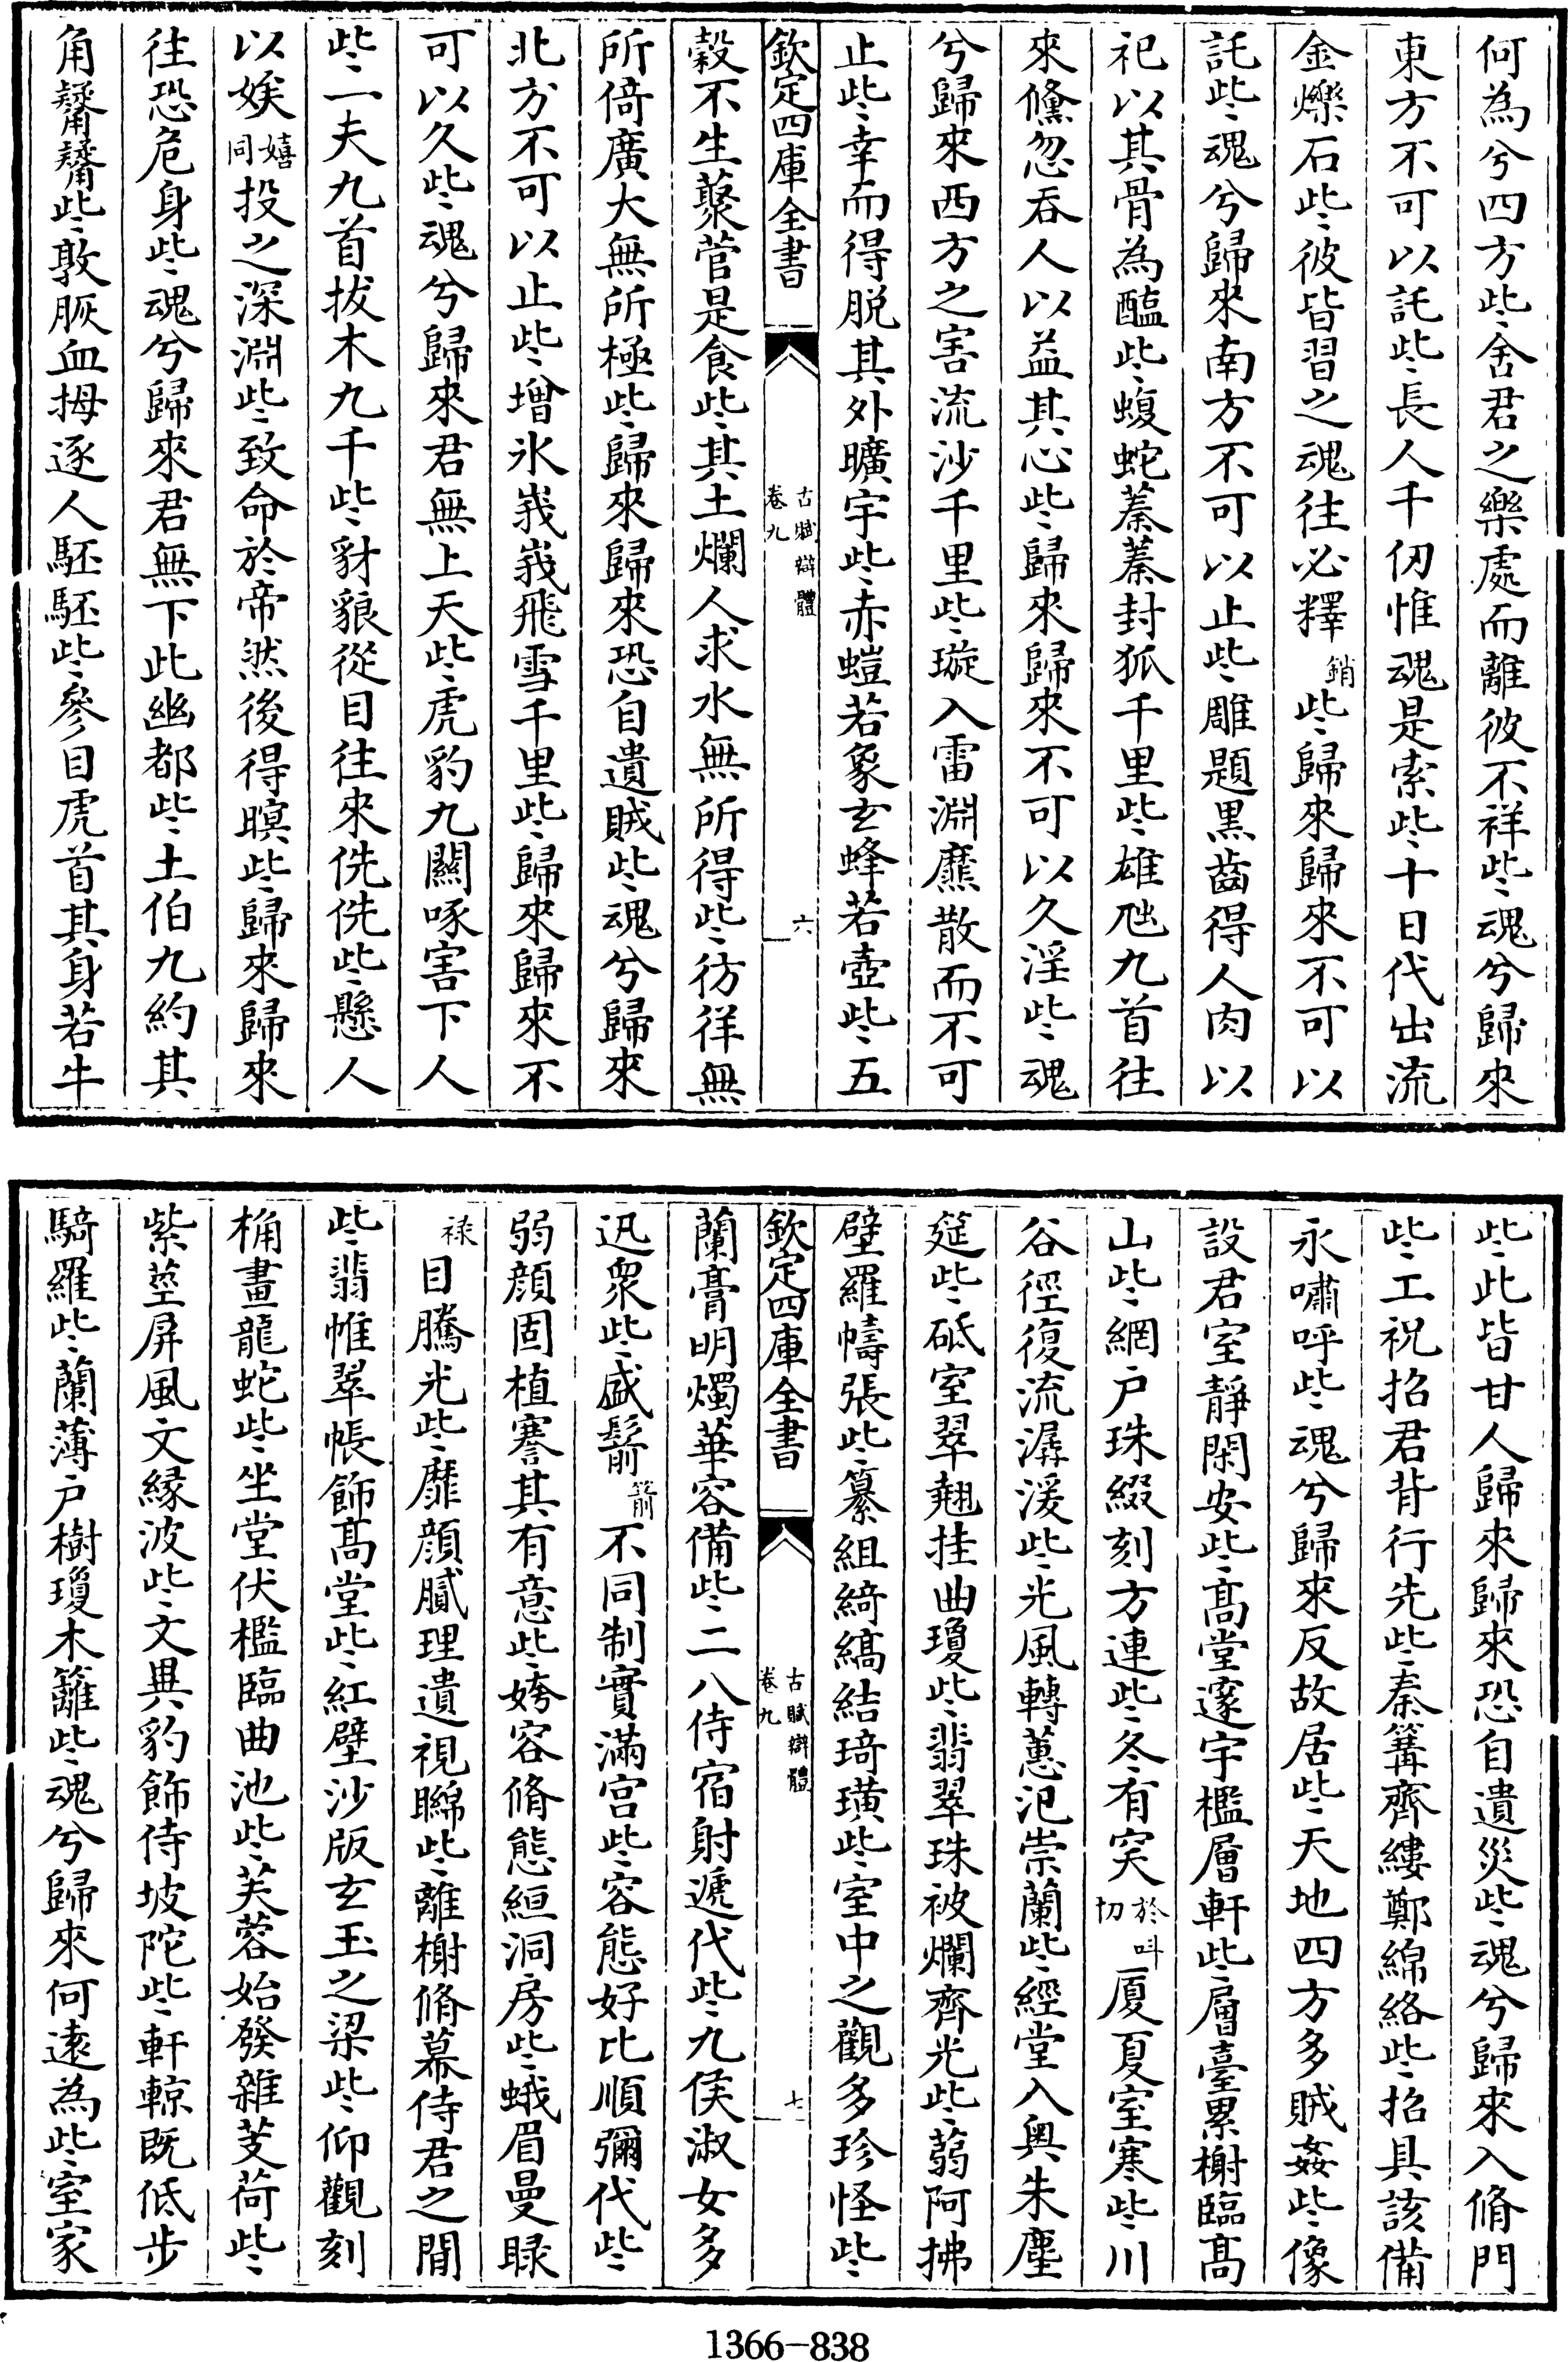 何為兮四方些舍君之樂處而離彼不祥些魂兮歸來
東方不可以託些長人千仞惟魂是索些十日代出流
金爍石些彼皆習之魂往必釋銷些歸來歸來不可以
託些魂兮歸來南方不可以止些雕題黒齒得人肉以
祀以其骨為醢些蝮蛇蓁蓁封狐千里些雄虺九首往
來儵忽吞人以益其心些歸來歸來不可以久淫些魂
兮歸來西方之害流沙千里些璇入雷淵爢散而不可
止些幸而得脱其外曠宇些赤螘若象玄蜂若壺些五
欽定四庫全書 古賦辯體 卷九 六
穀不生藂菅是食些其土爛人求水無所得些彷徉無
所倚廣大無所極些歸來歸來恐自遺賊些魂兮歸來
北方不可以止些增氷峩峩飛雪千里些歸來歸來不
可以久些魂兮歸來君無上天些虎豹九關啄害下人
些一夫九首拔木九千些豺狼從目往來侁侁些懸人
以娭嬉同投之深淵些致命於帝然後得瞑些歸來歸來
往恐危身些魂兮歸來君無下此幽都些土伯九約其
角觺觺些敦脄血拇逐人駓駓些參目虎首其身若牛
些此皆甘人歸來歸來恐自遺災些魂兮歸來入脩門
些工祝招君背行先些秦篝齊縷鄭綿絡些招具該備
永嘯呼些魂兮歸來反故居些天地四方多賊姦些像
設君室靜閑安些髙堂邃宇檻層軒些層臺累榭臨髙
山些網户珠綴刻方連些冬有突於呌切厦夏室寒些川
谷徑復流潺湲些光風轉蕙氾崇蘭些經堂入奥朱塵
筵些砥室翠翹挂曲瓊些翡翠珠被爛齊光些蒻阿拂
壁羅幬張些纂組綺縞結琦璜些室中之觀多珍怪些
欽定四庫全書 古賦辯體 卷九 七
蘭膏明燭華容備些二八侍宿射遞代些九侯淑女多
迅衆些盛鬋箭不同制實滿宫些容態好比順彌代些
弱顔固植謇其有意些姱容脩態絙洞房些蛾眉曼睩
祿目騰光些靡顔膩理遺視矊些離榭脩幕侍君之閒
些翡帷翠帳飾髙堂些紅壁沙版玄玉之梁些仰觀刻
桷畫龍蛇些坐堂伏檻臨曲池些芙蓉始發雜芰荷些
紫莖屏風文縁波些文異豹飾侍坡陀些軒輬既低步
騎羅些蘭薄户樹瓊木籬些魂兮歸來何逺為些室家
1366-838